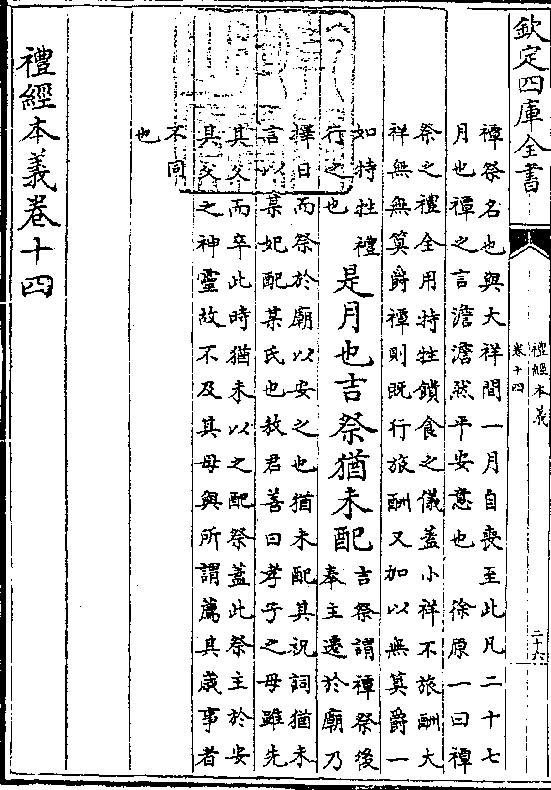 欽定四庫全書
禮經本義
卷十四
二十六
禫祭名也與大祥間一月自喪至此凡二十七
月也禫之言澹澹然平安意也　徐原一曰禫
祭之禮全用特牲饋食之儀蓋小祥不旅酬大
祥無無筭爵禫則既行旅酬又加以無筭爵一
如特牲禮
行之也
是月也吉祭猶未配
吉祭謂禫祭後
奉主遷於廟乃
擇日而祭於廟以安之也猶未配其祝詞猶未
言以某妃配某氏也敖君善曰孝子之母雖先
其父而卒此時猶未以之配祭蓋此祭主於安
其父之神靈故不及其母與所謂薦其歲事者
不同
也
禮經本義卷十四